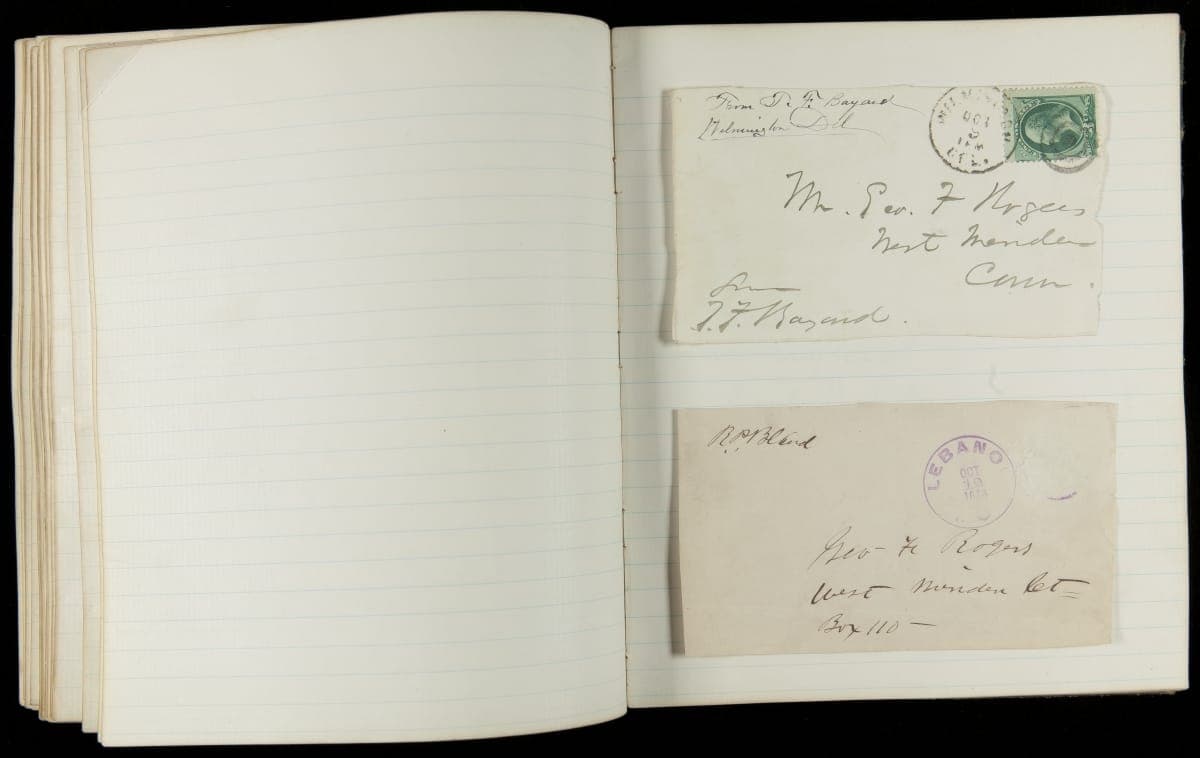 From T. F. Bayard
Wilmington Del
WILMINGTON
OCT
DEL.
Mr. Geo. F Rogers
West Meriden
Conn.
from
T. F. Bayard.
R. P. Bland
LEBANO
OCT
19
Geo F Rogers
West Meriden Ct
Box 110